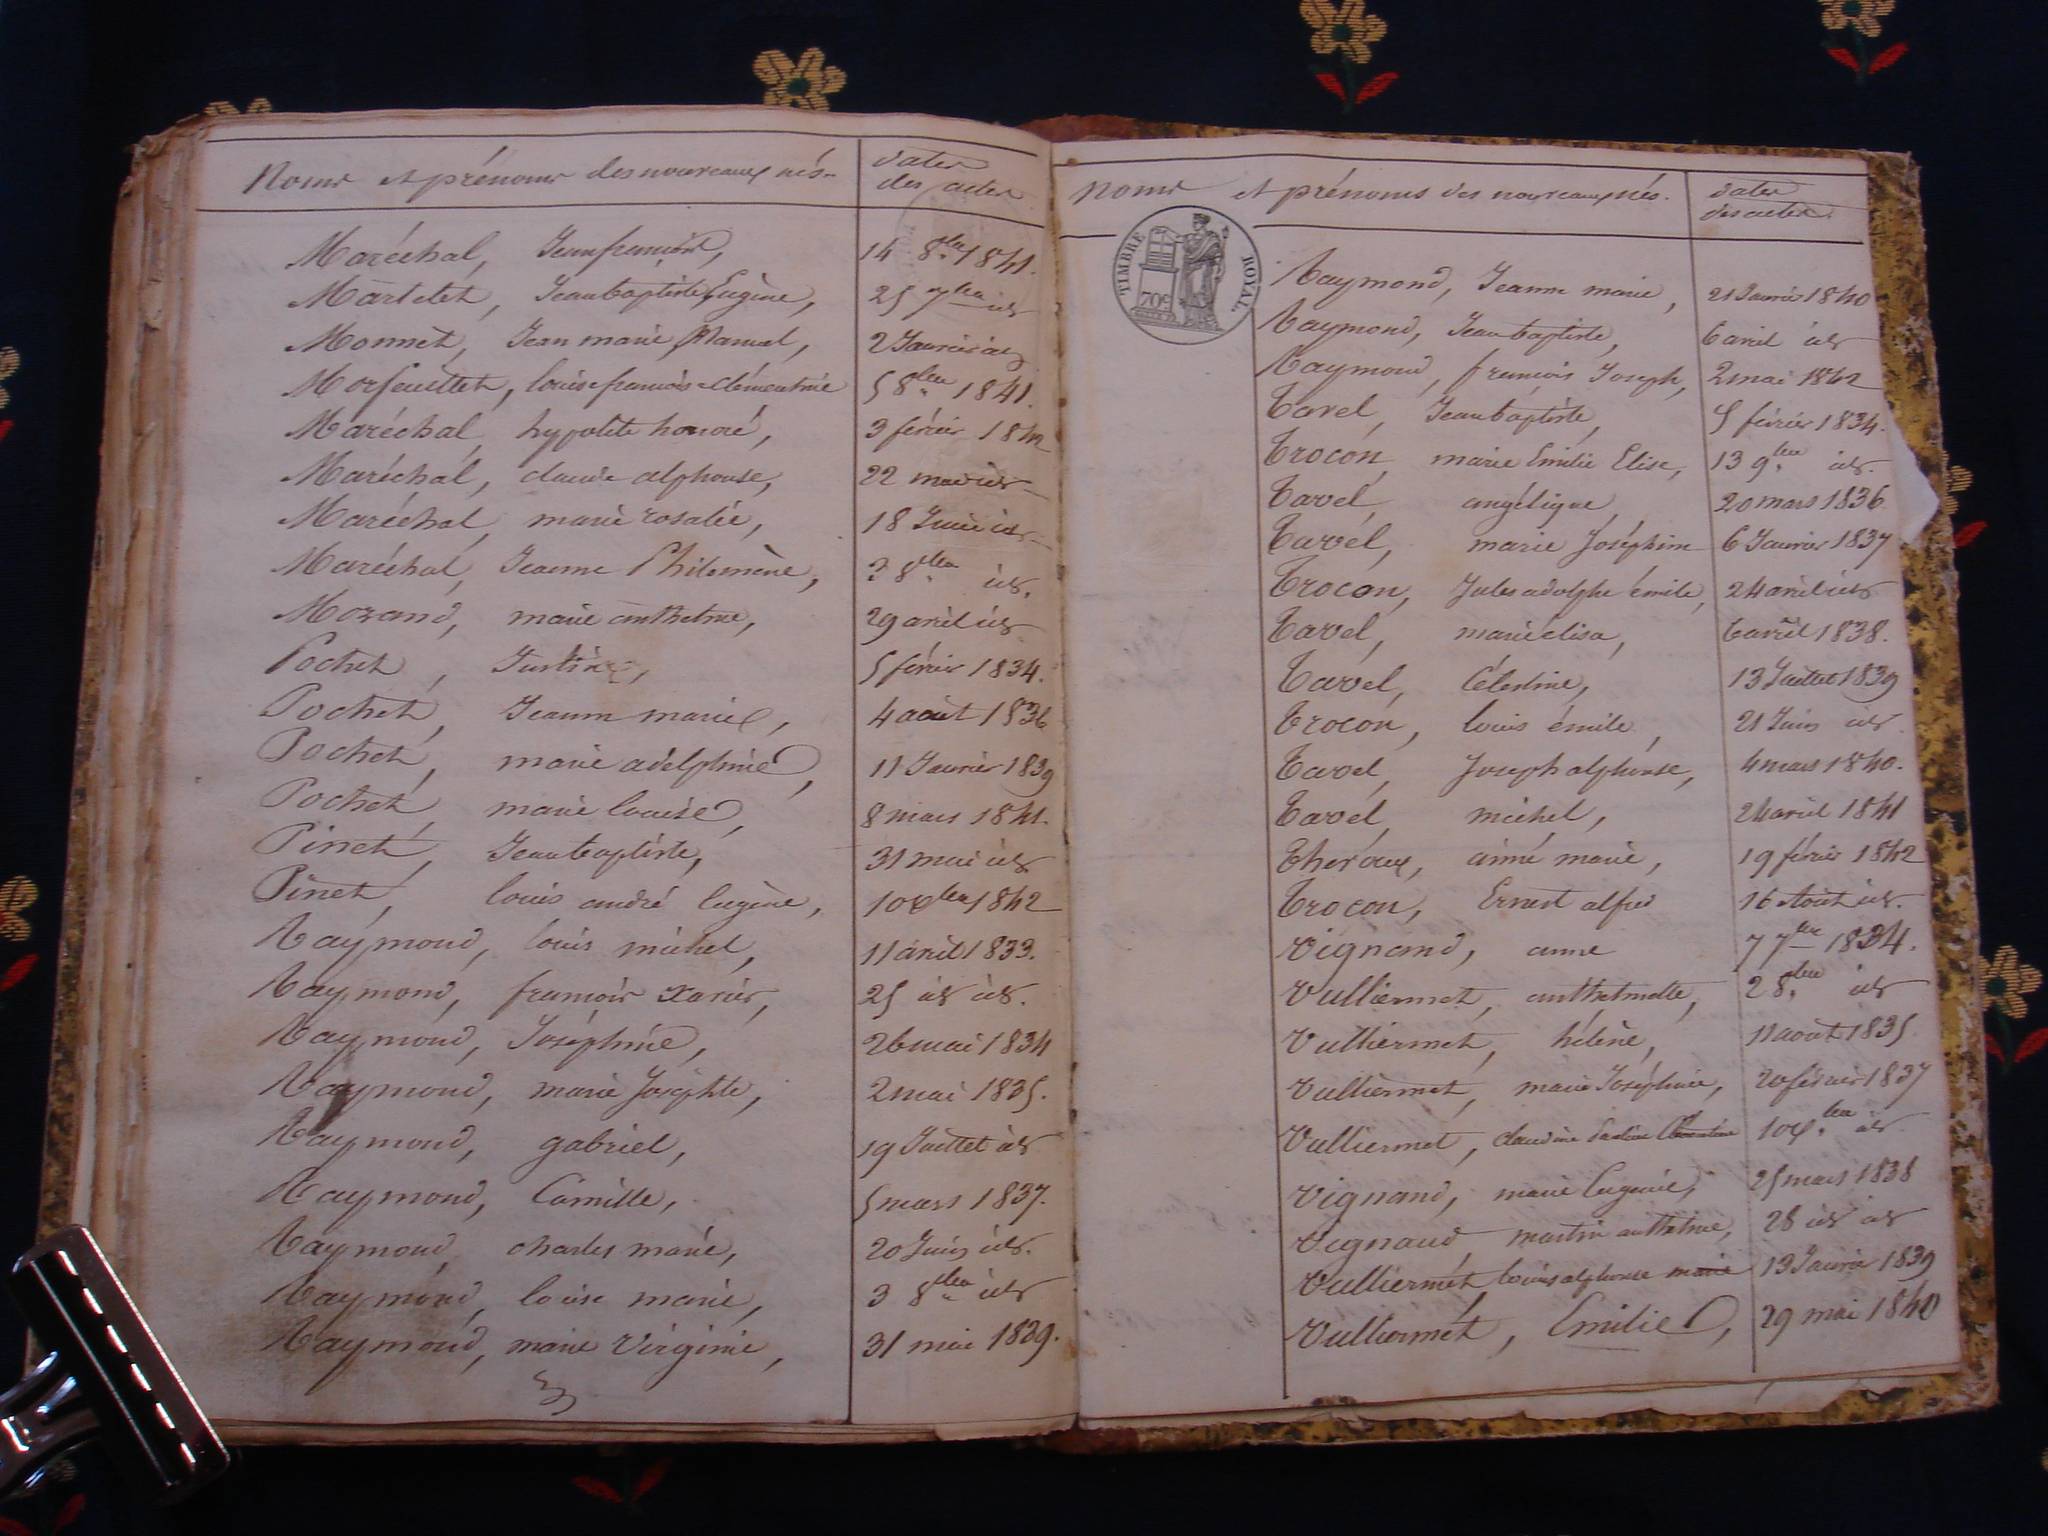 Noms et prénoms des nouveaux nés
dates
des actes
Maréchal, Jean françois, 14 8bre 1841.
Martelet, Jean baptiste Eugène, 25 7bre id
Monnet, Jean marie, 2 Janvier
Morfeuillet, louise françoise clémentine 5 8bre 1841.
Maréchal, hypolite honoré, 3 février 1842
Maréchal, claude alphonse, 22 id
Maréchal, marie rosalie, 18 id
Maréchal, Jeanne Philomène, 3 8bre id.
Morand, marie anthelme, 29 avril id
Pochet, 5 février 1834.
Pochet, Jeanne marie, 4 août 1836
Pochet, marie adelphine, 11 Janvier 1839
Pochet, marie louise, 8 mars 1841.
Pinet, Jean baptiste, 31 mai id
Pinet, louis andré Eugène, 10 Xbre 1842
Raymond, louis michel, 11 avril 1833.
Raymond, françois xavier, 25 id id.
Raymond, Joséphine, 26 mai 1834
Raymond, marie Josephte, 2 mai 1835.
Raymond, gabriel, 19 Juillet id
Raymond, Camille, 5 mars 1837.
Raymond, charles marie, 20 Juin id.
Raymond, louise marie, 3 8bre id
Raymond, marie Virginie, 31 mai 1839.
Noms et prénoms des nouveaux nés.
dates
des actes.
TIMBRE ROYAL.
70c
Raymond, Jeanne marie, 21 Janvier 1840
Raymond, Jean baptiste, 6 avril id
Raymond, françois Joseph, 2 mai 1842
Tavel, Jean baptiste, 5 février 1834.
Trocon, marie Emilie Elise, 13 9bre id.
Tavel, angélique, 20 mars 1836
Tavel, marie Joséphine 6 Janvier 1837
Trocon, Jules adolphe émile, 24 avril id
Tavel, marie élisa, 6 avril 1838.
Tavel, Célestine, 13 Juillet 1839
Trocon, louis émile, 21 Juin id
Tavel, Joseph alphonse, 4 mars 1840.
Tavel, michel, 24 avril 1841
Theroux, aimé marie, 19 février 1842
Trocon, Ernest alfred 16 Août id.
Vignand, anne 7 7bre 1834.
Vulliermet, anthelmette, 2 8bre id
Vulliermet, hélène, 11 août 1835
Vulliermet, marie Joséphine, 20 février 1837
Vulliermet, claudine 10 Xbre id
Vignand, marie Eugénie, 25 mars 1838
Vignand, martin anthelme, 28 id id
Vulliermet, louis alphonse marie 13 Janvier 1839
Vulliermet, Emilie, 29 mai 1840